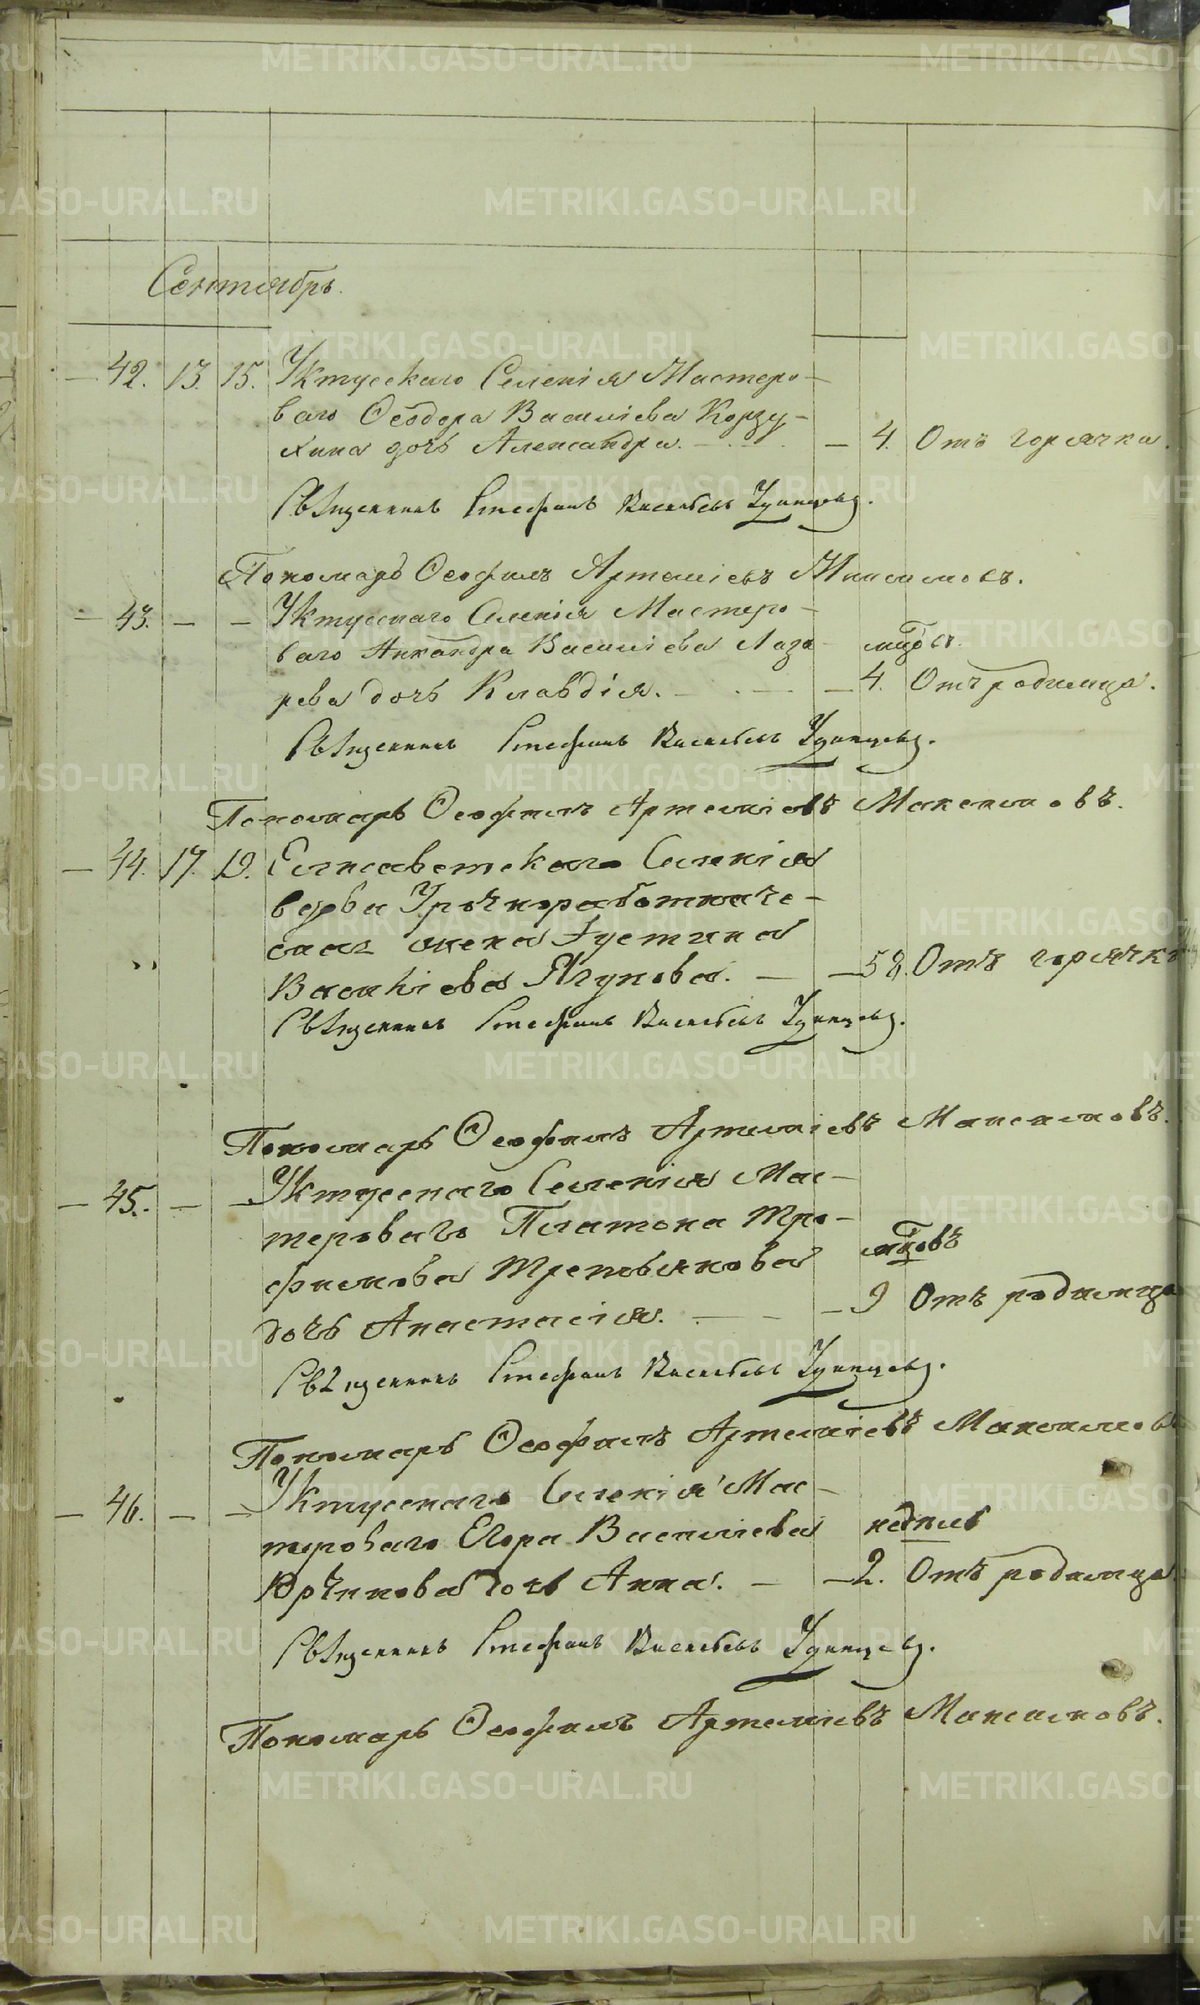 Сентябрь.
— 42. 13. 15. Уктусскаго Селенія Мастеро-
ваго Ѳеодора Василіева Корзу-
хина дочь Александра. — 4. Отъ горячки.
Священникъ Стефанъ Васильевъ Удинцевъ.
Пономарь Ѳеофилъ Артеміевъ Максимовъ.
— 43. — — Уктусскаго Селенія Мастеро-
ваго Никандра Василіева Лаза-
рева дочь Клавдія. — 4. Отъ родимца.
Священникъ Стефанъ Васильевъ Удинцевъ.
Пономарь Ѳеофилъ Артеміевъ Максимовъ.
— 44. 17. 19. Елисаветскаго Селенія
вдова Урочноработниче-
ская жена Іустина
Василіева Ягупова. — — 58. Отъ горячки
Священникъ Стефанъ Васильевъ Удинцевъ.
Пономарь Ѳеофилъ Артеміевъ Максимовъ.
— 45. — — Уктусскаго Селенія Мас-
тероваго Платона Тро-
фимова Третьякова мцовъ
дочь Анастасія. — 9 Отъ родимца
Священникъ Стефанъ Васильевъ Удинцевъ.
Пономарь Ѳеофилъ Артеміевъ Максимовъ
— 46. — — Уктусскаго Селенія Мас-
тероваго Егора Василіева недѣль
дочь Анна. — — 2. Отъ родимца.
Священникъ Стефанъ Васильевъ Удинцевъ.
Пономарь Ѳеофилъ Артеміевъ Максимовъ.
METRIKI.GASO-URAL.RU